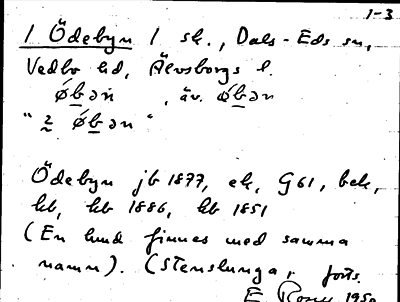 1-3
1 Ödebyn 1 sk., Dals-Eds sn,
Vedbo hd, Älvsborgs l.
øbən , äv. øbən
" 2 øbən "
Ödebyn jb 1877, ek, G61, bek,
kb, hb 1886, hb 1851
(En hmd finnes med samma
namn). (Stenslunga, forts.
1950